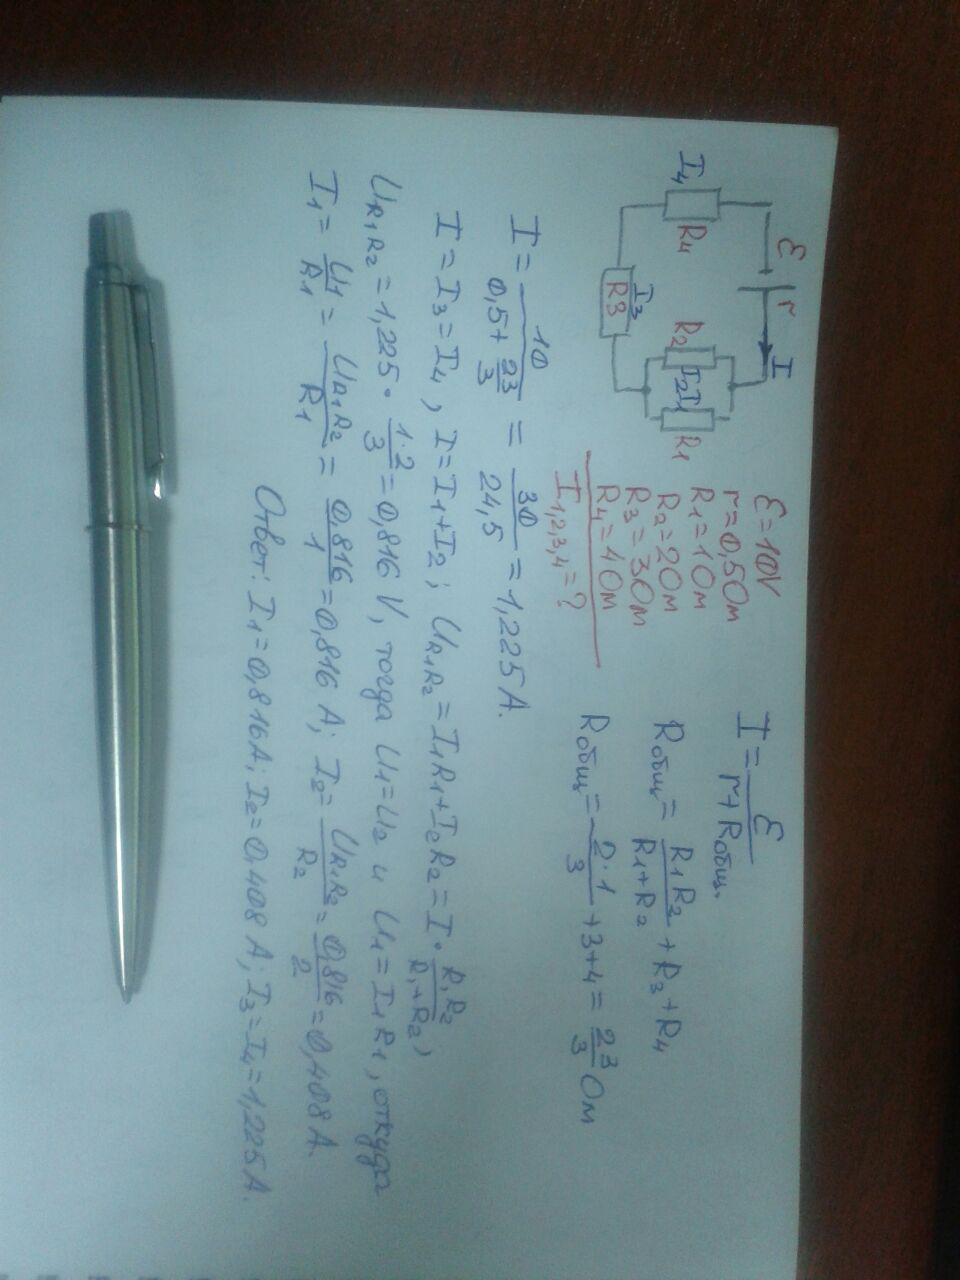 ε r I
I₄ R₄ R₂ I₂ I₁ R₁
I₃
R3
ε=10V
r=0,5Ом
R₁=1Ом
R₂=2Ом
R₃=3Ом
R₄=4Ом
I₁,₂,₃,₄=?
I=ε/(r+Rобщ.)
Rобщ=R₁R₂/(R₁+R₂)+R₃+R₄
Rобщ=2·1/3+3+4=23/3 Ом
I=10/(0,5+23/3)=30/24,5=1,225А.
I=I₃=I₄, I=I₁+I₂; UR₁R₂=I₁R₁+I₂R₂=I·R₁R₂/(R₁+R₂),
UR₁R₂=1,225·1·2/3=0,816 V, тогда U₁=U₂ и U₁=I₁R₁, откуда
I₁=U₁/R₁=UR₁R₂/R₁=0,816/1=0,816 А; I₂=UR₁R₂/R₂=0,816/2=0,408 А.
Ответ: I₁=0,816А; I₂=0,408 А; I₃=I₄=1,225 А.